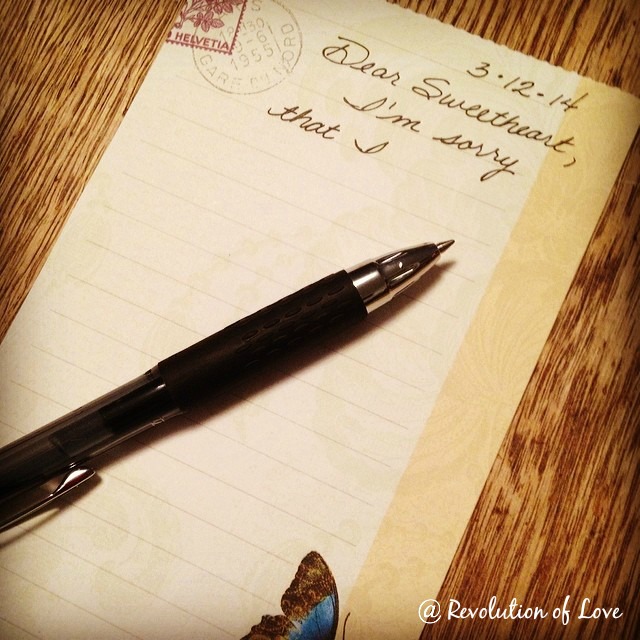 HELVETIA
3.12.14
Dear Sweetheart,
I'm sorry
that I
@ Revolution of Love